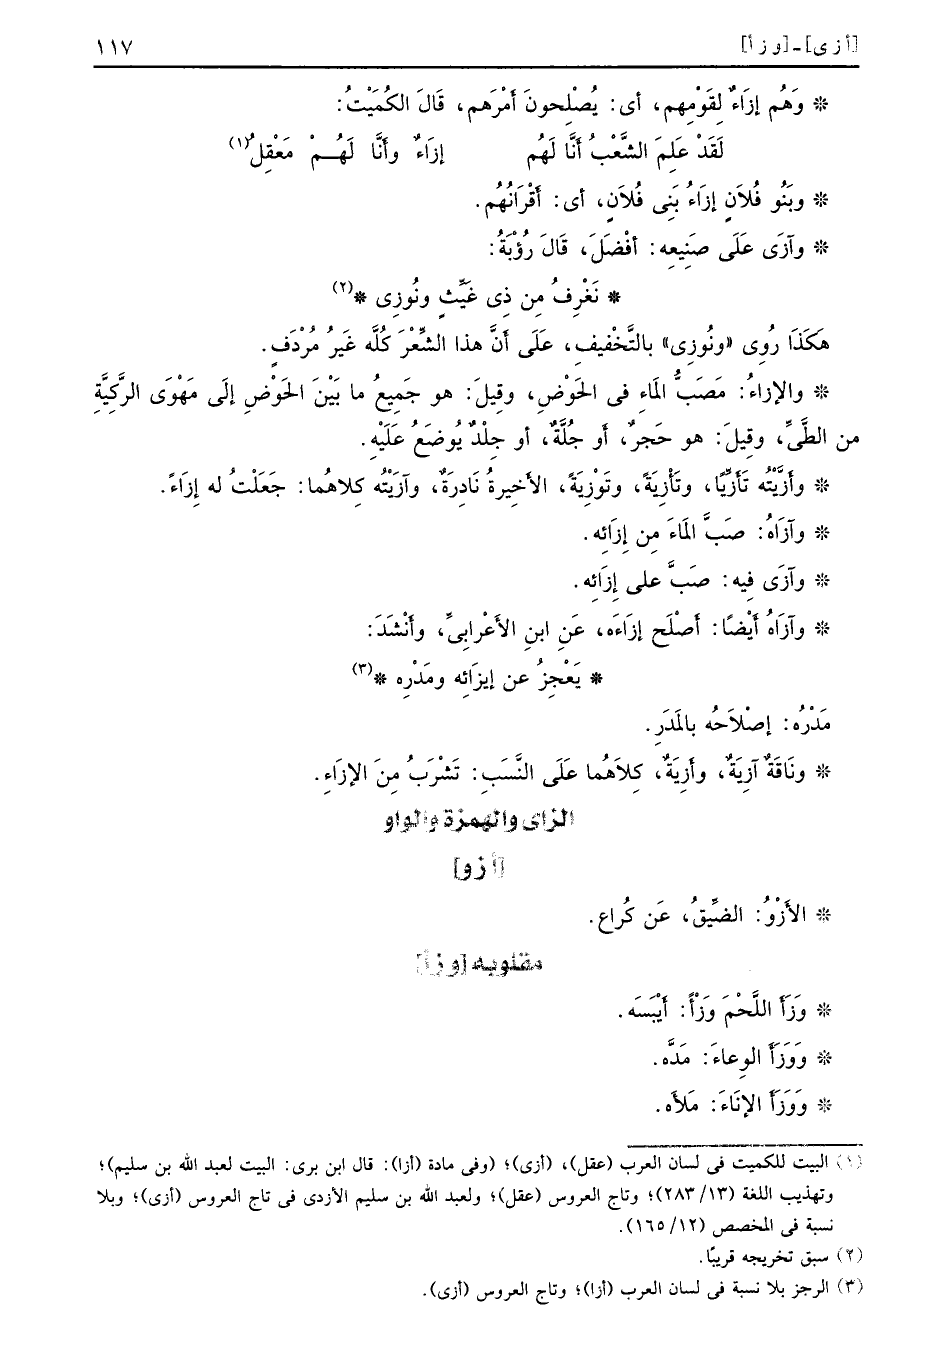 [أ ز ى] ـ [و ز أ] ١١٧
* وَهُم إزَاءٌ لِقَوْمِهِم، أى: يُصْلِحونَ أَمْرَهم، قَالَ الكُمَيْتُ:
لَقَدْ عَلِمَ الشَّعْبُ أنَّا لَهُم إزَاءٌ وأنَّا لَهُـــمْ مَعْقِلُ(١)
* وبَنُو فُلاَنٍ إزَاءُ بَنِى فُلاَنٍ، أى: أَقْرَانُهُم.
* وآزَى عَلَى صَنِيعِه: أفْضَلَ، قَالَ رُؤْبَةُ:
* نَغْرِفُ مِن ذِى غَيِّثٍ ونُوزِى *(٢)
هَكَذَا رُوِى «ونُوزِى» بالتَّخْفِيفِ، عَلَى أَنَّ هذا الشِّعْرَ كُلَّه غَيرُ مُرْدَفٍ.
* والإزاءُ: مَصَبُّ الَماءِ فى الحَوْضِ، وقِيلَ: هو جَمِيعُ ما بَيْنَ الحَوْضِ إلَى مَهْوَى الرَّكِيَّةِ
من الطَّىِّ، وقِيلَ: هو حَجرٌ، أو جُلَّةٌ، أو جِلْدٌ يُوضَعُ عَلَيْهِ.
* وأَزَّيْتُه تَأَزِّيًا، وتَأْزِيَةً، وتَوْزِيَةً، الأخيرةُ نَادِرَةٌ، وآزَيْتُه كِلاهُما: جَعَلْتُ له إزَاءً.
* وآزَاهُ: صَبَّ الَماءَ مِن إِزَائِه.
* وآزَى فِيه: صَبَّ على إِزَائِه.
* وآزَاهُ أَيْضًا: أَصْلَح إزَاءَه، عَنِ ابنِ الأَعْرابىِّ، وأَنْشَدَ:
* يَعْجِزُ عن إيزَائِه ومَدْرِه *(٣)
مَدْرُه: إصْلاَحُه بالَمدَرِ.
* ونَاقَةٌ آزِيَةٌ، وأَزِيَةٌ، كِلاَهُما عَلَى النَّسَبِ: تَشْرَبُ مِنَ الإزَاءِ.
الزاى والهمزة والواو
[أ ز و]
* الأَزْوُ: الضِّيقُ، عَن كُراعٍ.
مقلوبه [و ز أ]
* وَزَأَ اللَّحْمَ وَزْأً: أَيْبَسَه.
* ووَزَأَ الوِعاءَ: مَدَّه.
* ووَزَأَ الإنَاءَ: مَلأَه.
(١) البيت للكميت فى لسان العرب (عقل)، (أزى)؛ (وفى مادة (أزا): قال ابن برى: البيت لعبد الله بن سليم)؛
وتهذيب اللغة (١٣/ ٢٨٣)؛ وتاج العروس (عقل)؛ ولعبد الله بن سليم الأزدى فى تاج العروس (أزى)؛ وبلا
نسبة فى المخصص (١٢/ ١٦٥).
(٢) سبق تخريجه قريبًا.
(٣) الرجز بلا نسبة فى لسان العرب (أزا)؛ وتاج العروس (أزى).